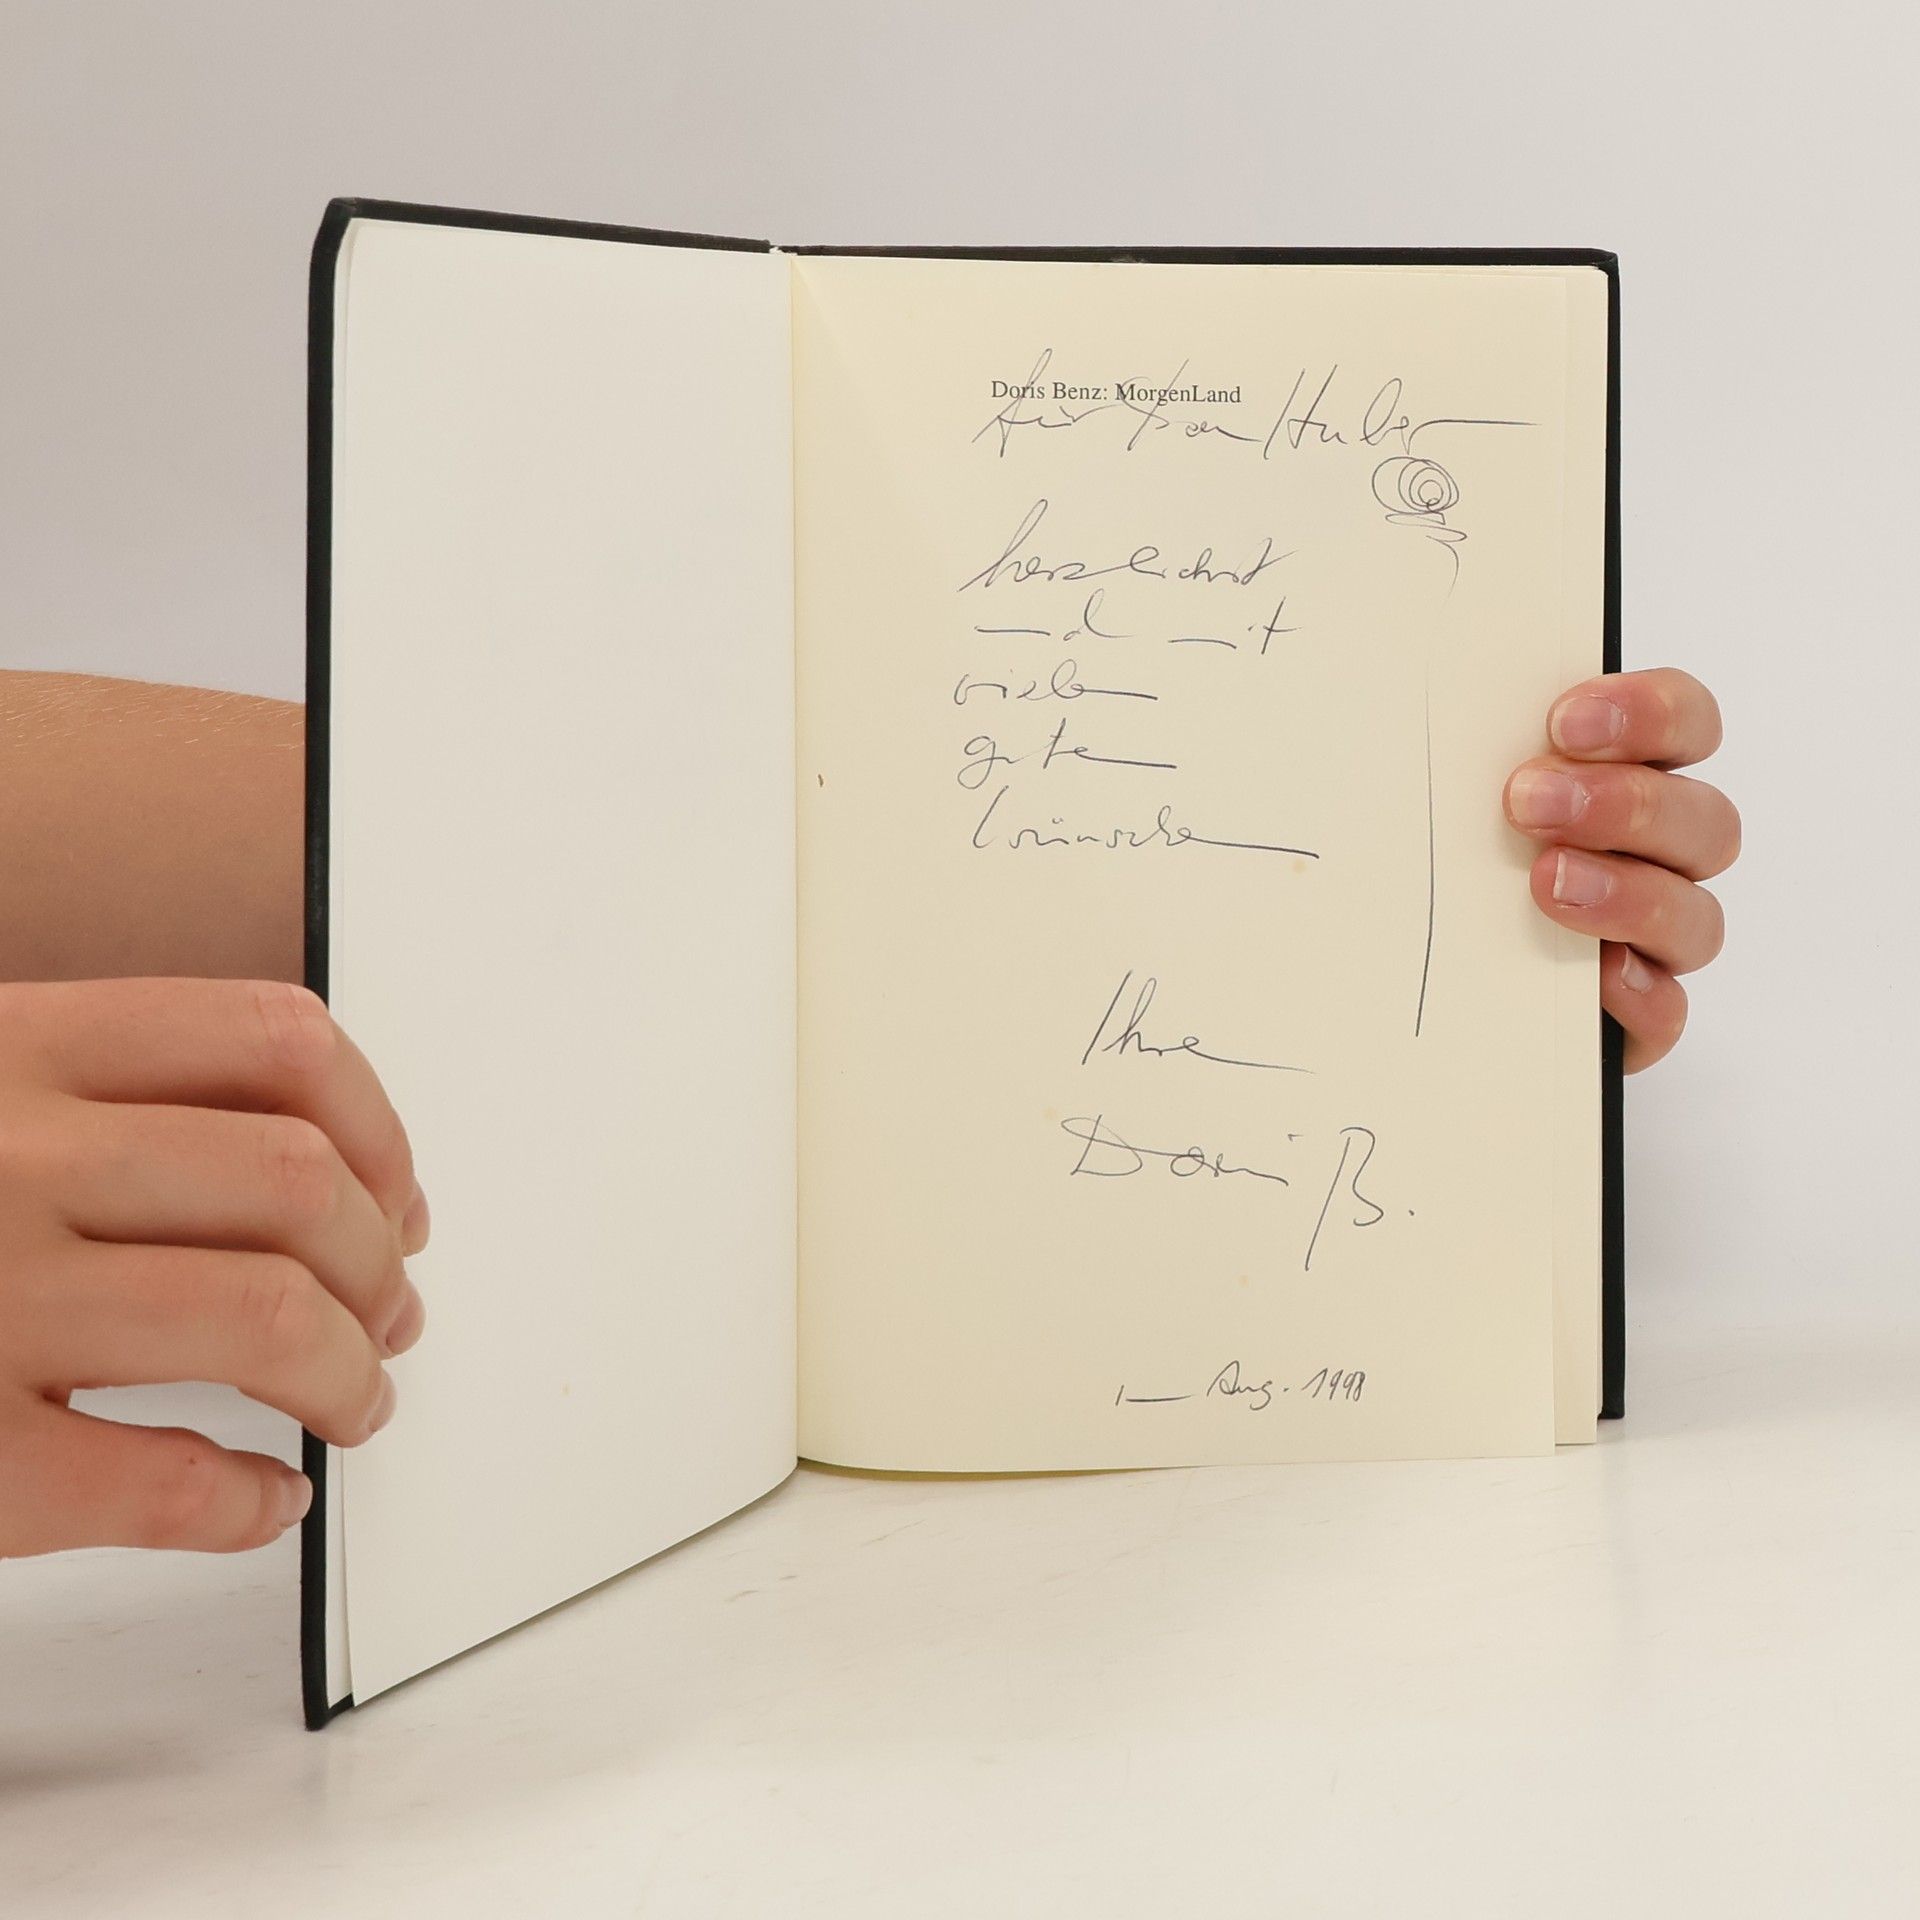 Doris Benz: MorgenLand
für Frau Huber
herzlichst
und mit
vielen
guten
Wünschen
Ihre
Doris B.
im Aug. 1998